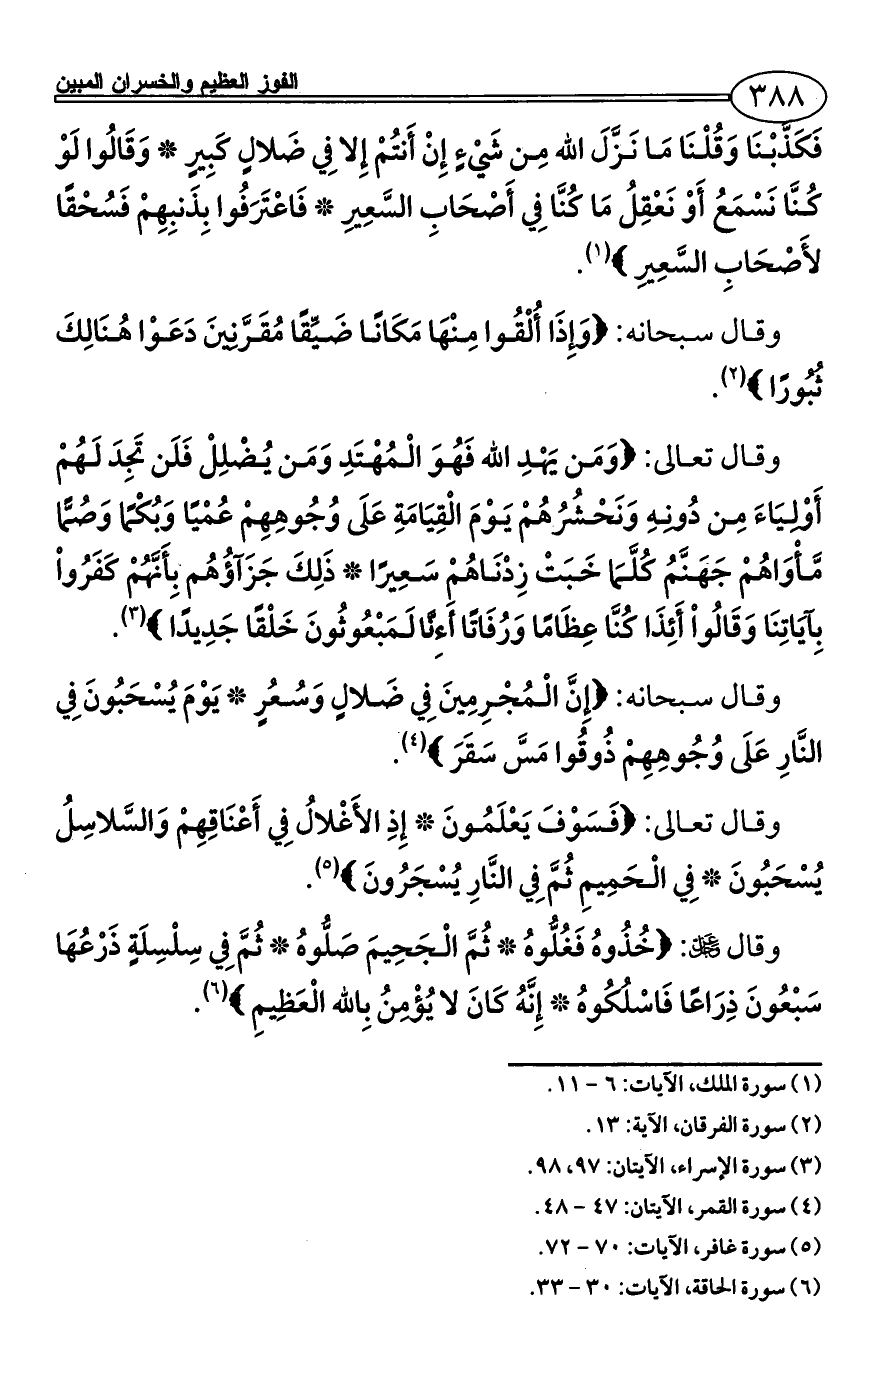 الفوز العظيم والخسران المبين
٣٨٨
فَكَذَّبْنَا وَقُلْنَا مَا نَزَّلَ الله مِن شَيْءٍ إِنْ أَنتُمْ إِلا فِي ضَلالٍ كَبِيرٍ * وَقَالُوا لَوْ
كُنَّا نَسْمَعُ أَوْ نَعْقِلُ مَا كُنَّا فِي أَصْحَابِ السَّعِيرِ * فَاعْتَرَفُوا بِذَنبِهِمْ فَسُحْقًا
لأَصْحَابِ السَّعِيرِ ﴾(١).
وقال سبحانه: ﴿وَإِذَا أُلْقُوا مِنْهَا مَكَانًا ضَيِّقًا مُقَرَّنِينَ دَعَوْا هُنَالِكَ
ثُبُورًا ﴾(٢).
وقال تعالى: ﴿وَمَن يَهْدِ الله فَهُوَ الْمُهْتَدِ وَمَن يُضْلِلْ فَلَن تَجِدَ لَهُمْ
أَوْلِيَاءَ مِن دُونِهِ وَنَحْشُرُهُمْ يَوْمَ الْقِيَامَةِ عَلَى وُجُوهِهِمْ عُمْيًا وَبُكْمًا وَصُمًّا
مَّأْوَاهُمْ جَهَنَّمُ كُلَّمَا خَبَتْ زِدْنَاهُمْ سَعِيرًا * ذَلِكَ جَزَآؤُهُم بِأَنَّهُمْ كَفَرُواْ
بِآيَاتِنَا وَقَالُواْ أَئِذَا كُنَّا عِظَامًا وَرُفَاتًا أَءِنَّا لَمَبْعُوثُونَ خَلْقًا جَدِيدًا ﴾(٣).
وقال سبحانه: ﴿إِنَّ الْمُجْرِمِينَ فِي ضَلالٍ وَسُعُرٍ * يَوْمَ يُسْحَبُونَ فِي
النَّارِ عَلَى وُجُوهِهِمْ ذُوقُوا مَسَّ سَقَرَ ﴾(٤).
وقال تعالى: ﴿فَسَوْفَ يَعْلَمُونَ * إِذِ الأَغْلالُ فِي أَعْنَاقِهِمْ وَالسَّلاسِلُ
يُسْحَبُونَ * فِي الْحَمِيمِ ثُمَّ فِي النَّارِ يُسْجَرُونَ ﴾(٥).
وقال ﷻ: ﴿خُذُوهُ فَغُلُّوهُ * ثُمَّ الْجَحِيمَ صَلُّوهُ * ثُمَّ فِي سِلْسِلَةٍ ذَرْعُهَا
سَبْعُونَ ذِرَاعًا فَاسْلُكُوهُ * إِنَّهُ كَانَ لا يُؤْمِنُ بِالله الْعَظِيمِ ﴾(٦).
(١) سورة الملك، الآيات: ٦ – ١١.
(٢) سورة الفرقان، الآية: ١٣.
(٣) سورة الإسراء، الآيتان: ٩٧، ٩٨.
(٤) سورة القمر، الآيتان: ٤٧ – ٤٨.
(٥) سورة غافر، الآيات: ٧٠ – ٧٢.
(٦) سورة الحاقة، الآيات: ٣٠ – ٣٣.